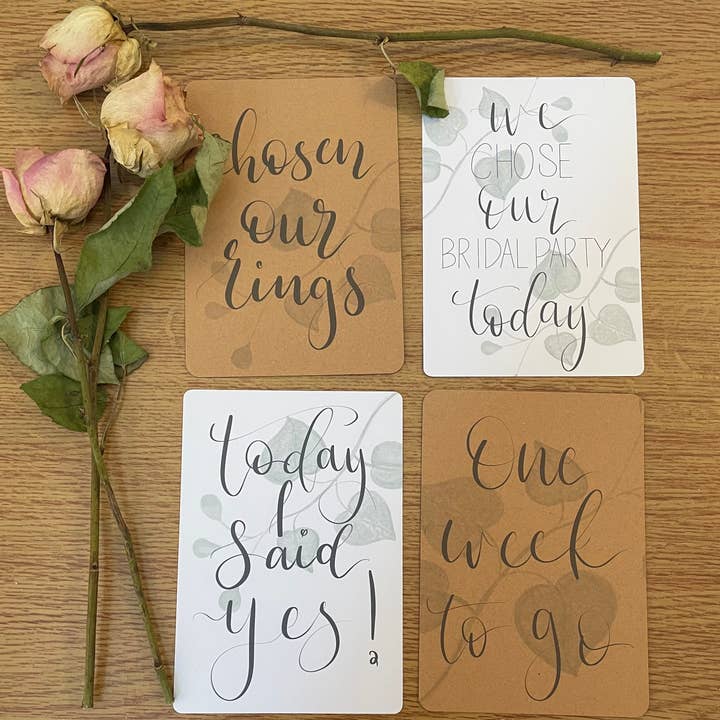 hosen
our
rings
we
CHOSE
our
BRIDAL PARTY
today
today
I
said
yes!
One
week
to go